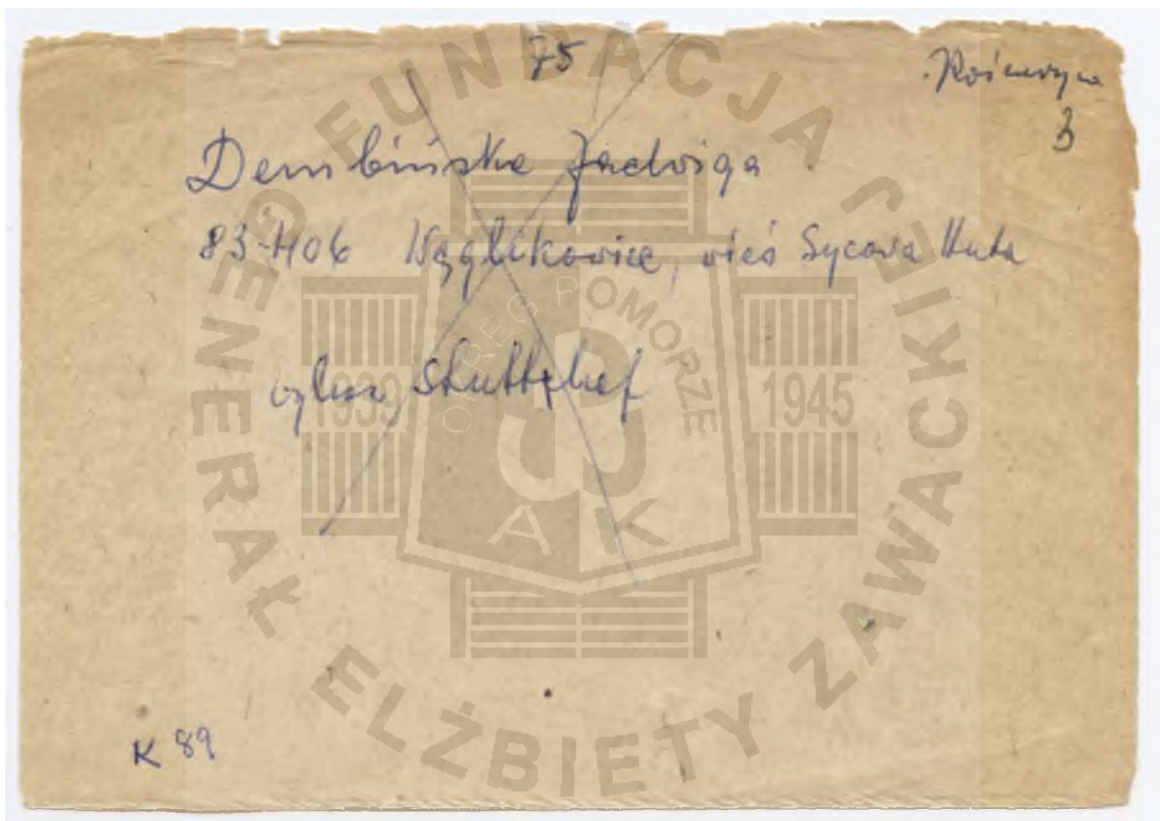 75
3
Dembińska Jadwiga
83-406 Wąglikowice, wieś Sycowa Huta
Stutthof
K 89
FUNDACJA
GENERAŁ ELŻBIETY ZAWACKIEJ
OKRĘG POMORZE
1939 1945
AK